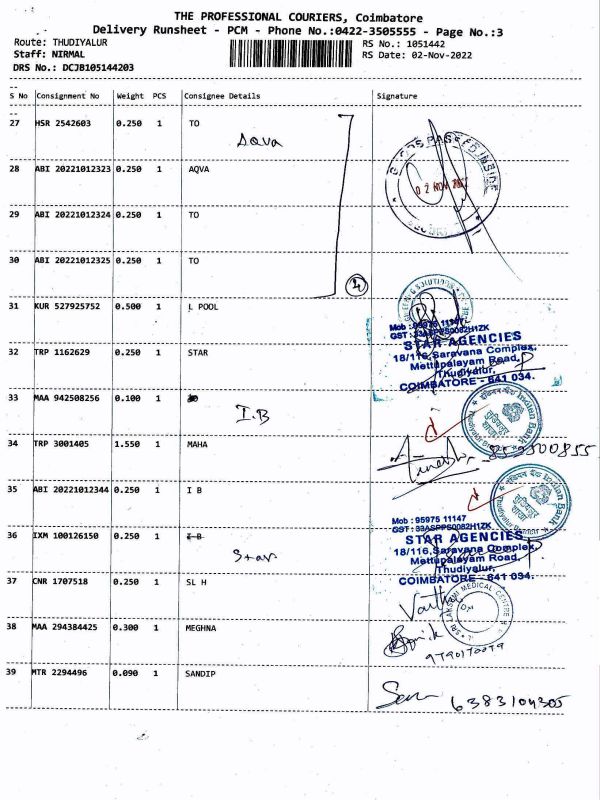 THE PROFESSIONAL COURIERS, Coimbatore
Delivery Runsheet - PCM - Phone No.:0422-3505555 - Page No.:3
Route: THUDIYALUR RS No.: 1051442
Staff: NIRMAL RS Date: 02-Nov-2022
DRS No.: DCJB105144203
S No Consignment No Weight PCS Consignee Details Signature
27 HSR 2542603 0.250 1 TO
Aqva
28 ABI 20221012323 0.250 1 AQVA
02 NOV
29 ABI 20221012324 0.250 1 TO
30 ABI 20221012325 0.250 1 TO
31 KUR 527925752 0.500 1 L POOL
Mob : 95975 11147
GST : 33ASPPS0082H1ZK
STAR AGENCIES
32 TRP 1162629 0.250 1 STAR
18/116, Saravana Complex,
Mettupalayam Road,
Thudiyalur,
COIMBATORE - 641 034.
33 MAA 942508256 0.100 1
I.B
Indian Bank
34 TRP 3001405 1.550 1 MAHA
35 ABI 20221012344 0.250 1 I B
Indian Bank
Mob : 95975 11147
GST : 33ASPPS0082H1ZK
36 IXM 100126150 0.250 1 I B
Star
STAR AGENCIES
18/116, Saravana Complex,
Mettupalayam Road,
Thudiyalur,
COIMBATORE - 641 034.
37 CNR 1707518 0.250 1 SL H
SRI LAKSHMI MEDICAL CENTRE
38 MAA 294384425 0.300 1 MEGHNA
9790170079
39 MTR 2294496 0.090 1 SANDIP
6383104305